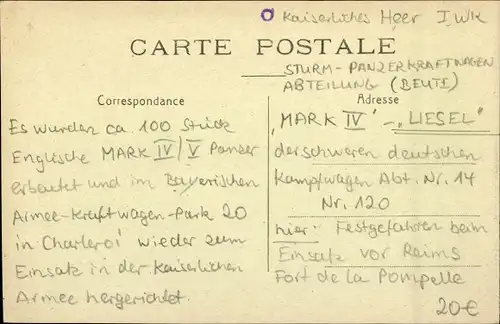 Kaiserliches Heer I WK
CARTE POSTALE
STURM-PANZERKRAFTWAGEN
ABTEILUNG (BEUTE)
Correspondance
Adresse
Es wurden ca 100 Stück
Englische MARK IV/V Panzer
erbeutet und im Bayerischen
Armee-Kraftwagen-Park 20
in Charleroi wieder zum
Einsatz in der Kaiserlichen
Armee hergerichtet.
"MARK IV" - "LIESEL"
der schweren deutschen
Kampfwagen Abt. Nr. 14
Nr. 120
hier: Festgefahren beim
Einsatz vor Reims
Fort de la Pompelle
20€